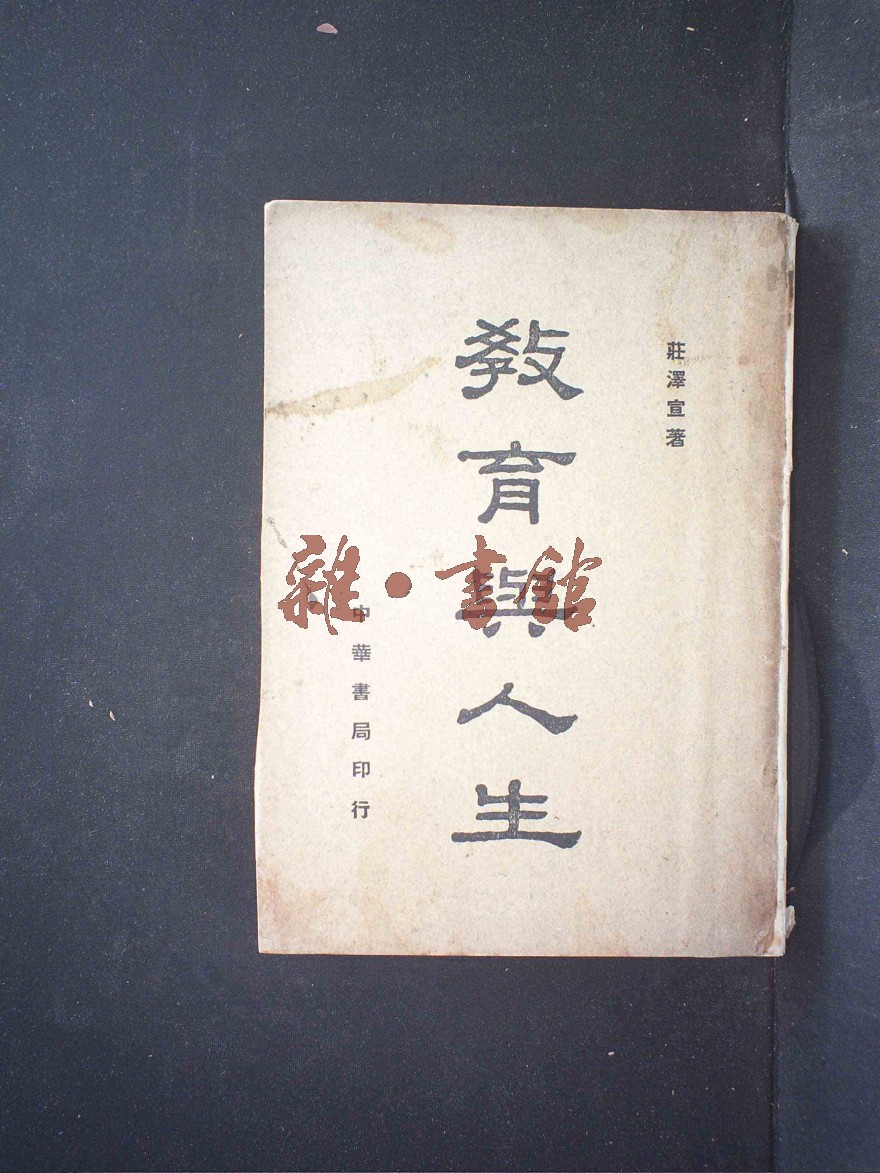 莊澤宣著
教育與人生
中華書局印行
雜·書館